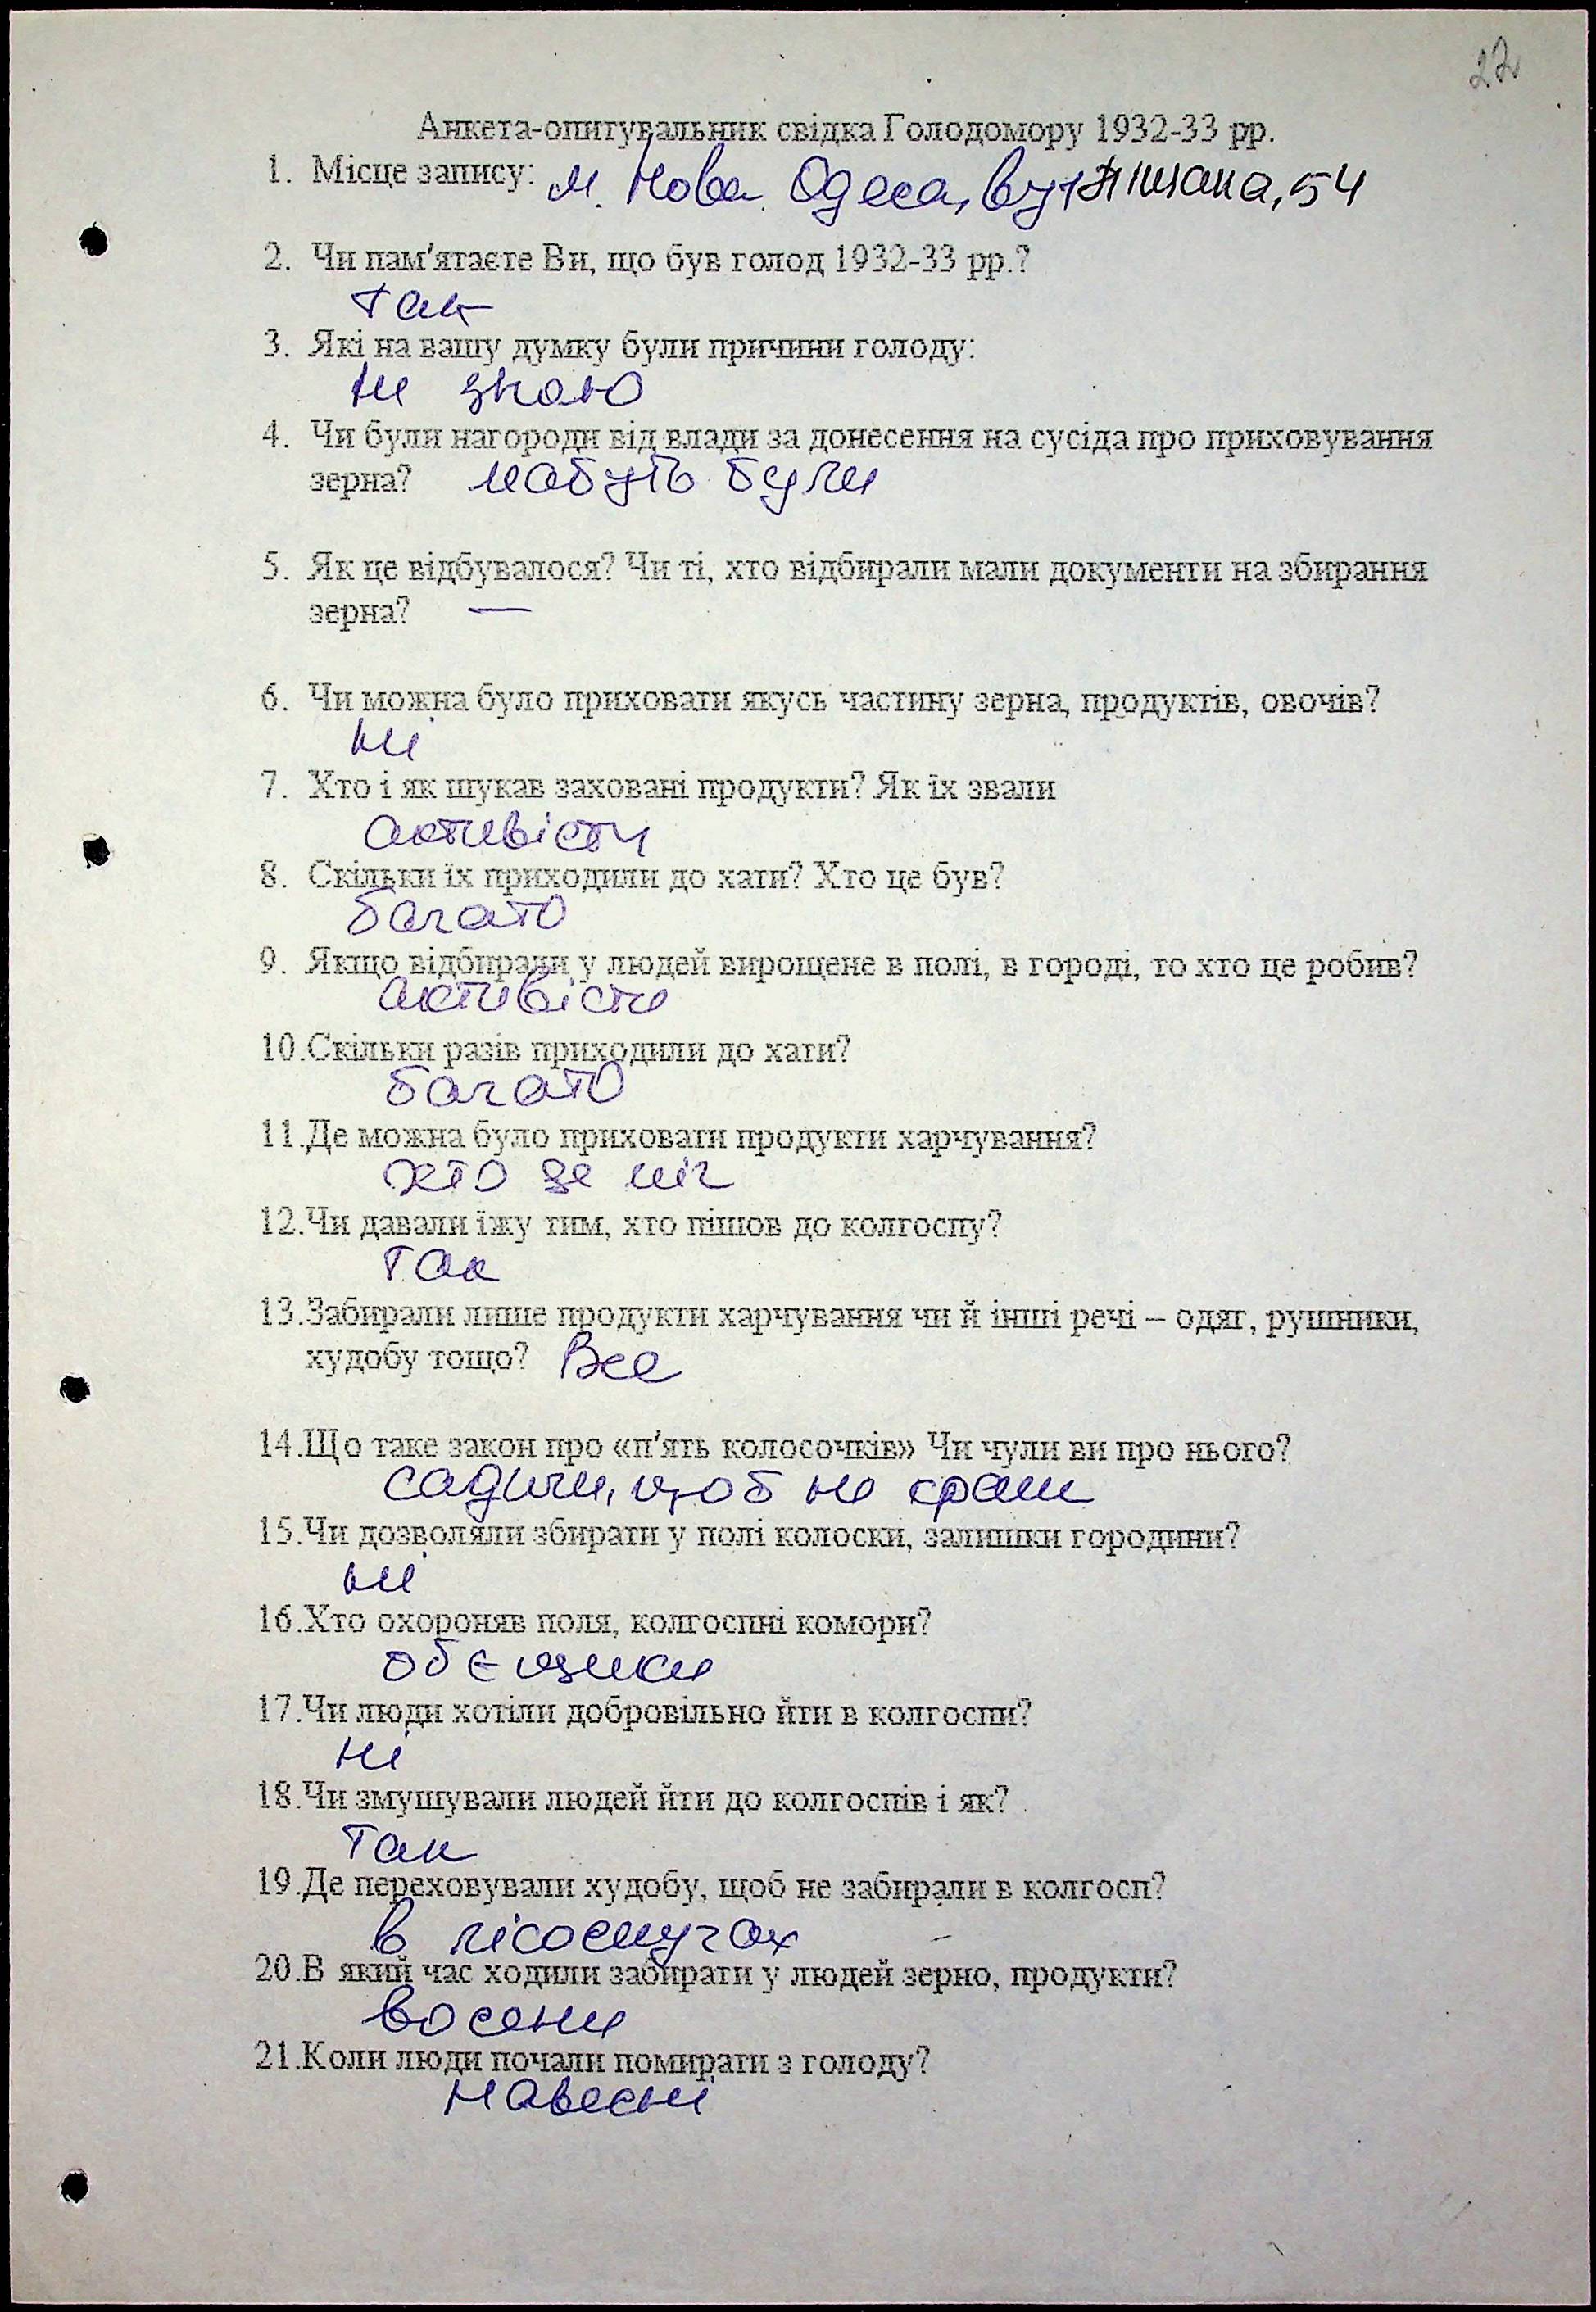 27
Анкета-опитувальник свідка Голодомору 1932-33 рр.
1. Місце запису: м. Нова Одеса, вул Піщана, 54
2. Чи пам'ятаєте Ви, що був голод 1932-33 рр.?
так
3. Які на вашу думку були причини голоду:
не знаю
4. Чи були нагороди від влади за донесення на сусіда про приховування
зерна? мабуть були
5. Як це відбувалося? Чи ті, хто відбирали мали документи на збирання
зерна? —
6. Чи можна було приховати якусь частину зерна, продуктів, овочів?
ні
7. Хто і як шукав заховані продукти? Як їх звали
активісти
8. Скільки їх приходили до хати? Хто це був?
багато
9. Якщо відбирали у людей вирощене в полі, в городі, то хто це робив?
активісти
10.Скільки разів приходили до хати?
багато
11.Де можна було приховати продукти харчування?
хто де міг
12.Чи давали їжу тим, хто пішов до колгоспу?
так
13.Забирали лише продукти харчування чи й інші речі – одяг, рушники,
худобу тощо? Все
14.Що таке закон про «п'ять колосочків» Чи чули ви про нього?
садили, щоб не крали
15.Чи дозволяли збирати у полі колоски, залишки городини?
ні
16.Хто охороняв поля, колгоспні комори?
обєщики
17.Чи люди хотіли добровільно йти в колгоспи?
ні
18.Чи змушували людей йти до колгоспів і як?
так
19.Де переховували худобу, щоб не забирали в колгосп?
в лісосмугах
20.В який час ходили забирати у людей зерно, продукти?
восени
21.Коли люди почали помирати з голоду?
навесні